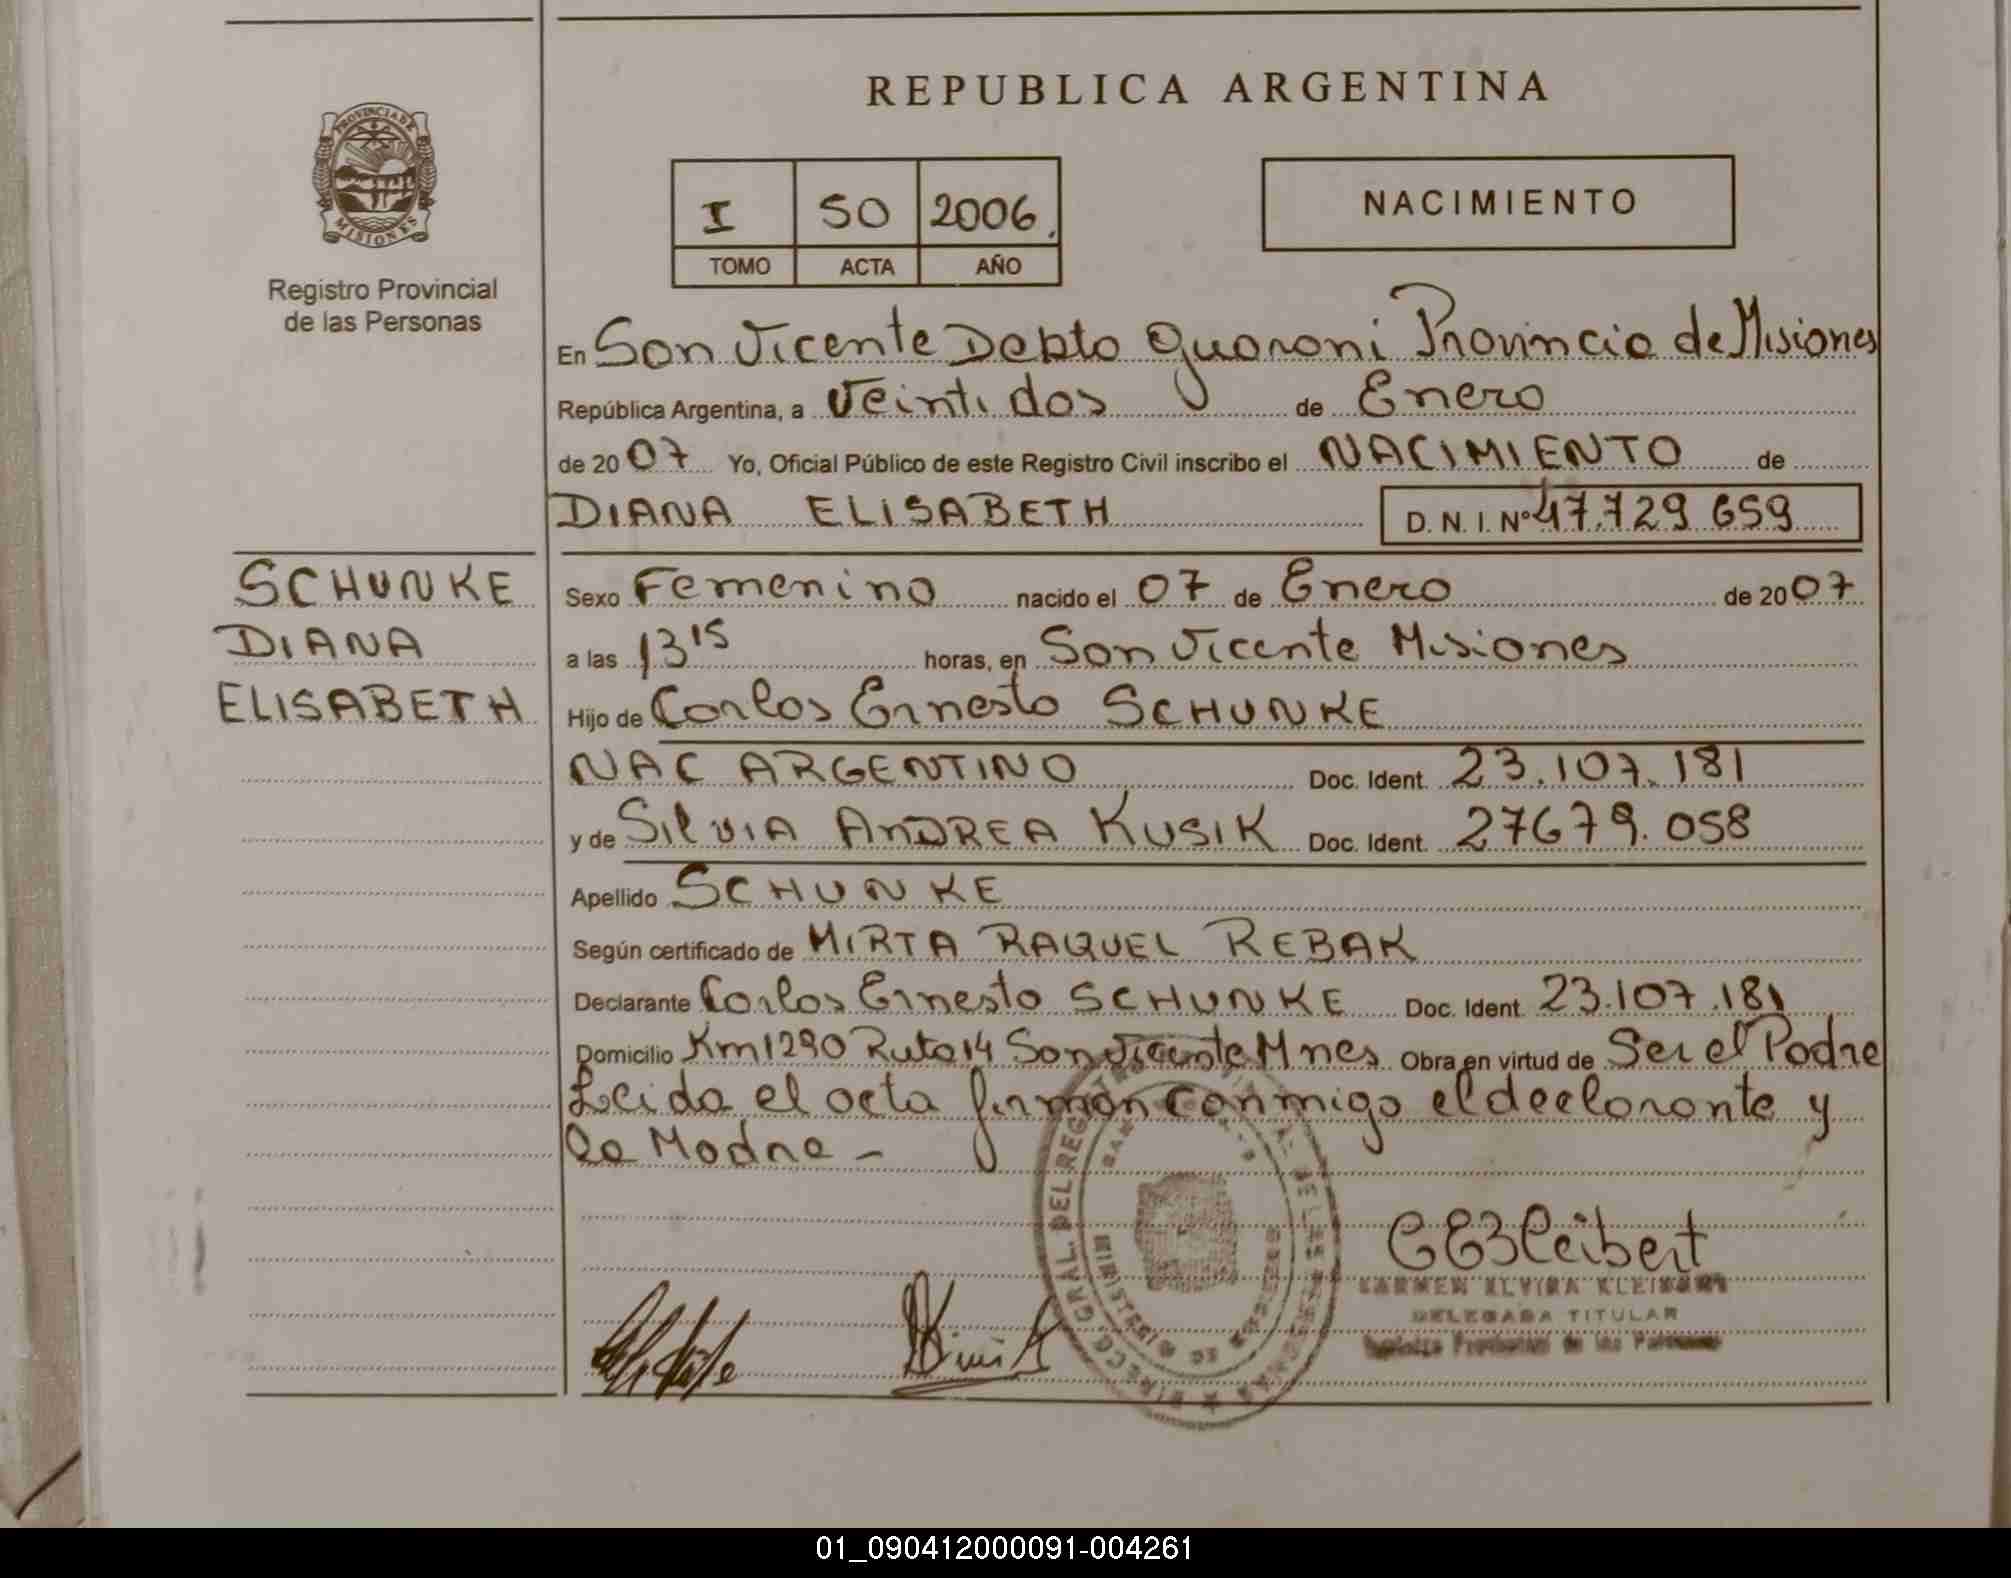 REPUBLICA ARGENTINA
PROVINCIA DE
MISIONES
Registro Provincial
de las Personas
I 50 2006.
TOMO ACTA AÑO
NACIMIENTO
En San Vicente Depto Guarani Provincia de Misiones
República Argentina, a Veinti dos de Enero
de 2007 Yo, Oficial Público de este Registro Civil inscribo el NACIMIENTO de
DIANA ELISABETH D. N. I. Nº 47.729 659
SCHUNKE
DIANA
ELISABETH
Sexo Femenino nacido el 07 de Enero de 2007
a las 13 15 horas, en San Vicente Misiones
Hijo de Carlos Ernesto SCHUNKE
NAC ARGENTINO Doc. Ident. 23.107.181
y de Silvia ANDREA KUSIK Doc. Ident. 27679.058
Apellido SCHUNKE
Según certificado de MIRTA RAQUEL REBAK
Declarante Carlos Ernesto SCHUNKE Doc. Ident. 23.107.181
Domicilio Km 1290 Ruta 14 San Vicente Mnes Obra en virtud de Ser el Padre
Leida el acta firman conmigo el declarante y
la Madre -
CEKleibert
CARMEN ELVIRA KLEIBERT
DELEGADA TITULAR
Registro Provincial de las Personas
01_090412000091-004261